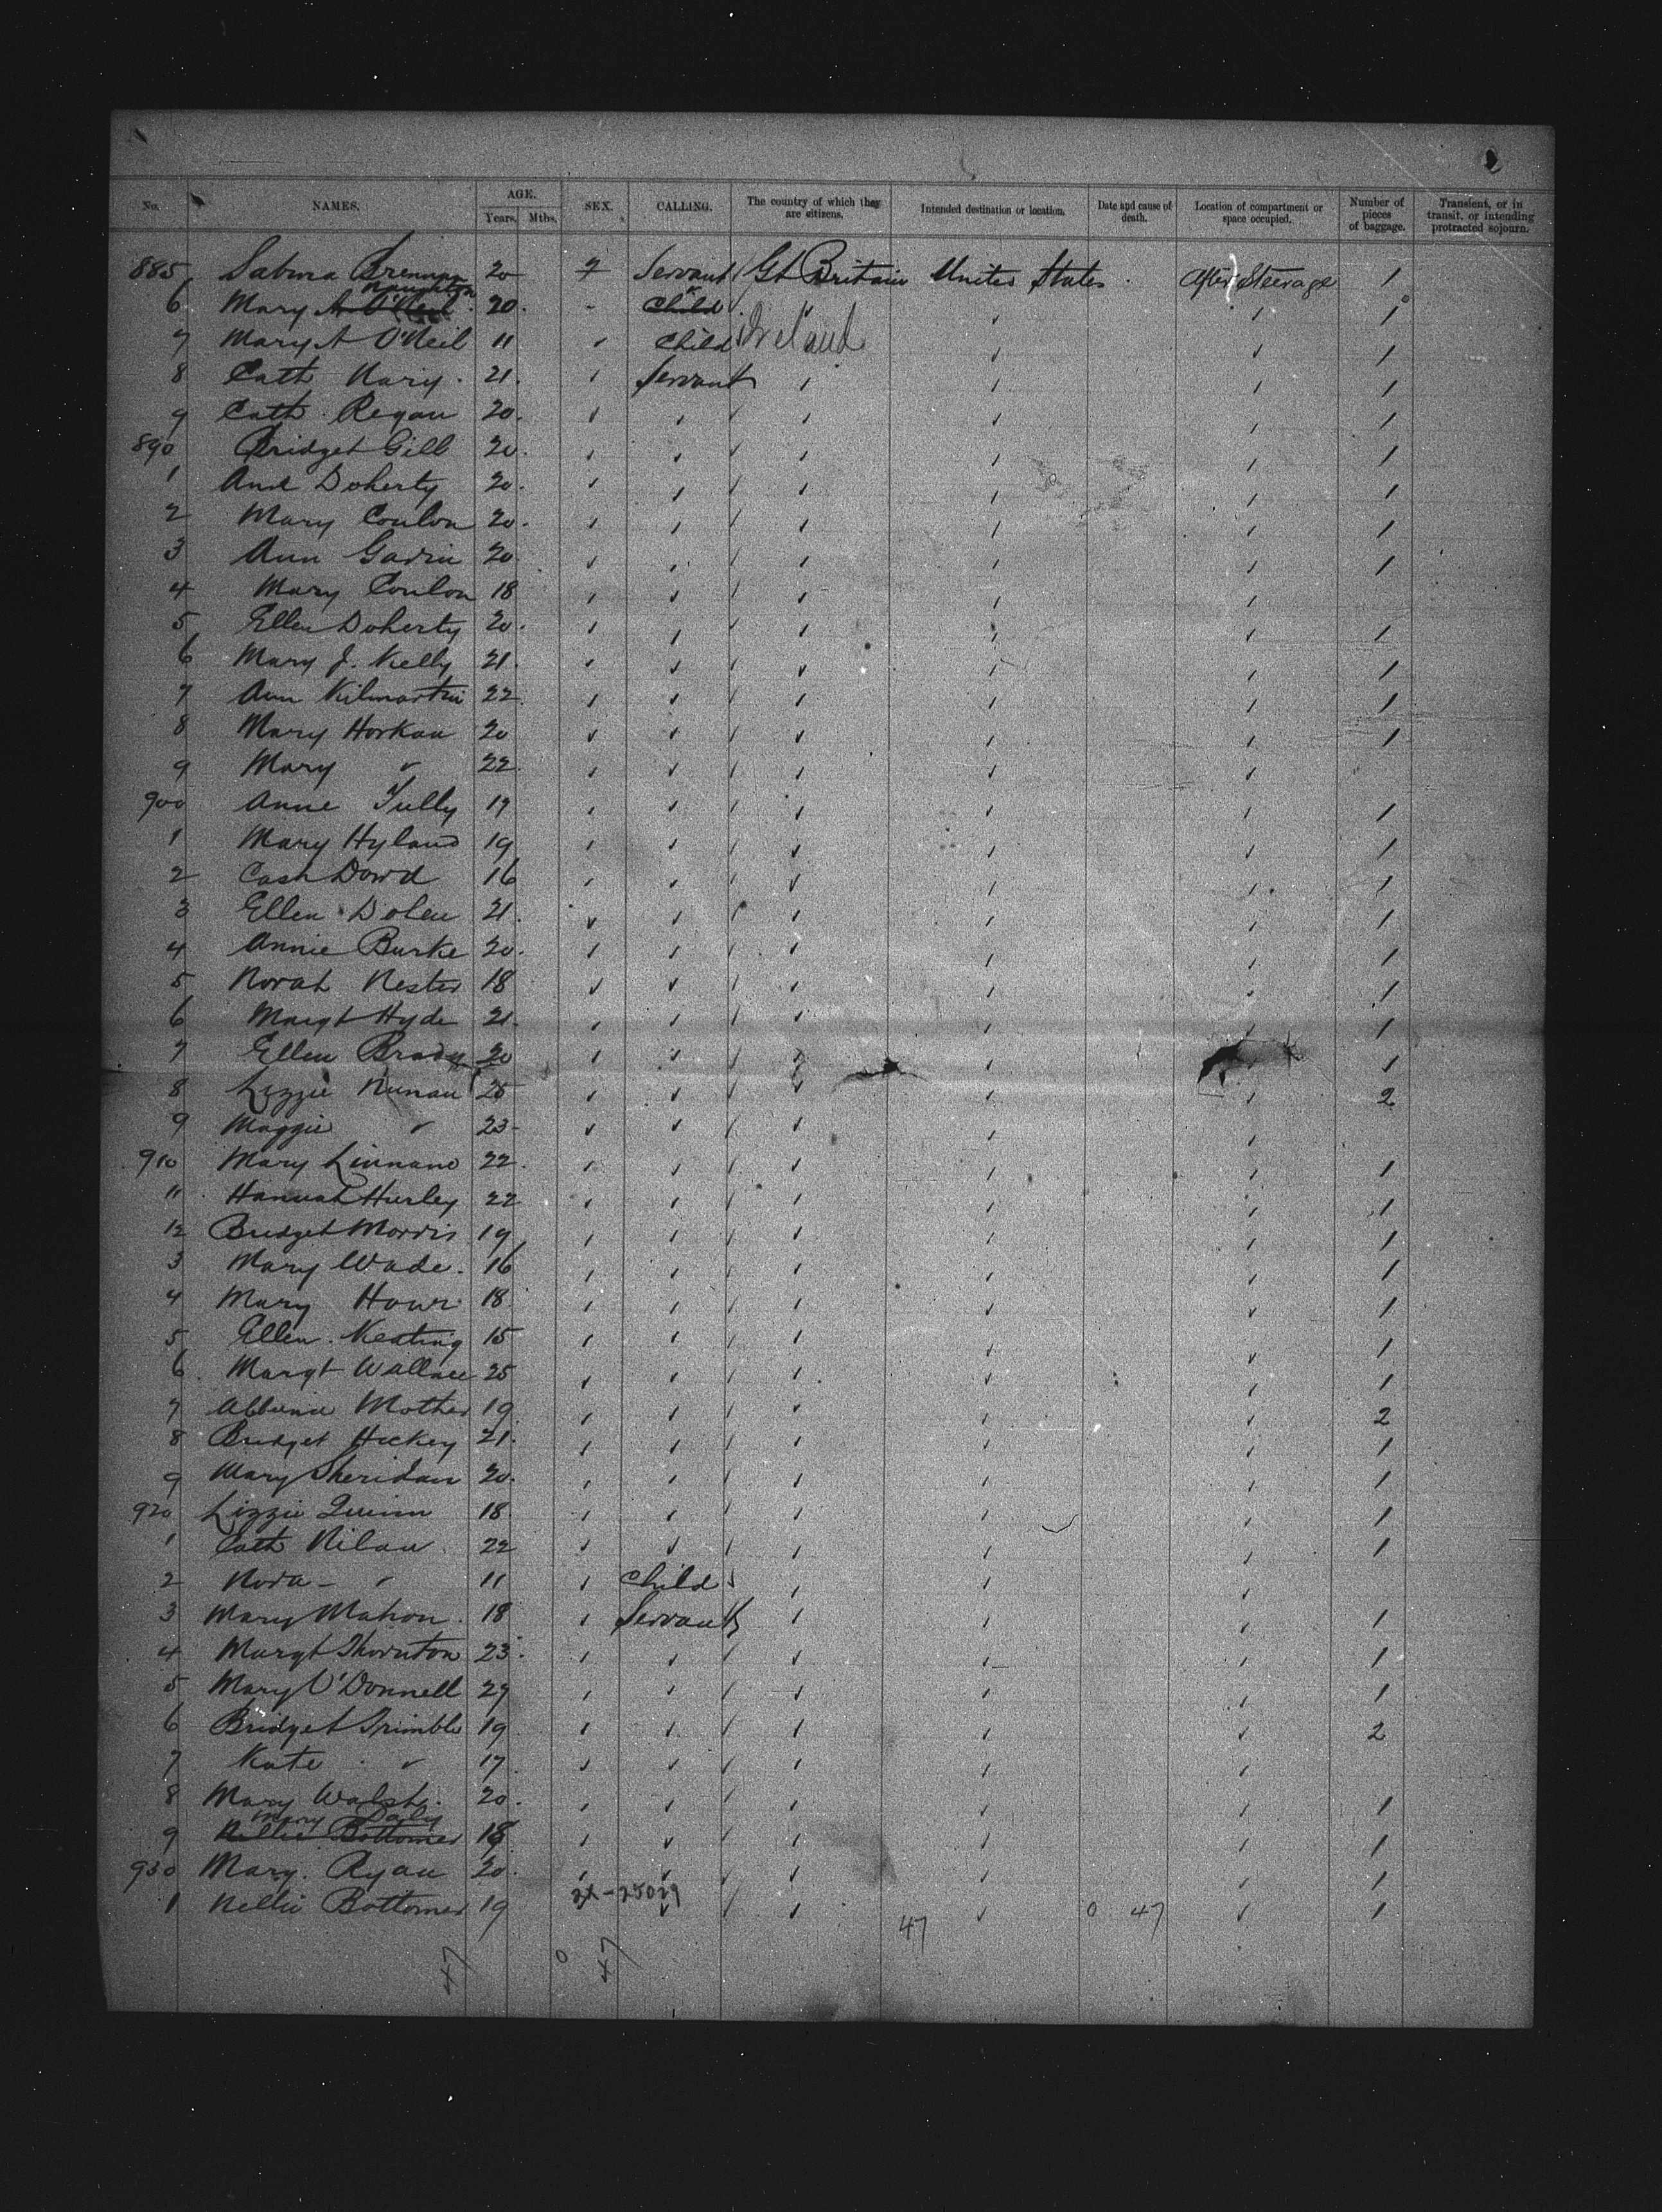 No. NAMES. AGE. Years. Mths. SEX. CALLING. The country of which they are citizens. Intended destination or location. Date and cause of death. Location of compartment or space occupied. Number of pieces of baggage. Transient, or in transit, or intending protracted sojourn.
885 Sabina Brennan 20 Servant Gt Britain United States After Steerage 1
6 Mary A O'Neil Naughton 20 Child " 1
7 Mary A O'Neil 11 Child Ireland 1
8 Cath Nary 21 Servant 1
9 Cath Regan 20 1
890 Bridget Gill 20 1
1 Ann Doherty 20 1
2 Mary Conlon 20 1
3 Ann Gavin 20 1
4 Mary Conlon 18
5 Ellen Doherty 20 1
6 Mary J. Kelly 21 1
7 Ann Kilmartin 22 1
8 Mary Horkan 20 1
9 Mary " 22
900 Anne Tully 19 1
1 Mary Hyland 19 1
2 Cath Dowd 16 1
3 Ellen Dolen 21 1
4 Annie Burke 20 1
5 Norah Nester 18 1
6 Margt Hyde 21 1
7 Ellen Brady 20 1
8 Lizzie Nunan 25 2
9 Maggie " 23
910 Mary Linnane 22 1
11 Hannah Hurley 22 1
12 Bridget Morris 19 1
3 Mary Wade 16 1
4 Mary Hour 18 1
5 Ellen Keating 15 1
6 Margt Wallace 25 1
7 Mother 19 2
8 Bridget Hickey 21 1
9 Mary Sheridan 20 1
920 Lizzie Quinn 18 1
1 Cath Nilan 22 1
2 Nora " 11 Child
3 Mary Mahon 18 Servant 1
4 Margt Thornton 23 1
5 Mary O'Donnell 27 1
6 Bridget Trimble 19 2
7 Kate " 17
8 Mary Walsh 20 1
Mary Daly
9 Nellie Bottomer 18 1
930 Mary Ryan 20 1
1 Nellie Bottomer 19 47 0 47 1
47 0 47